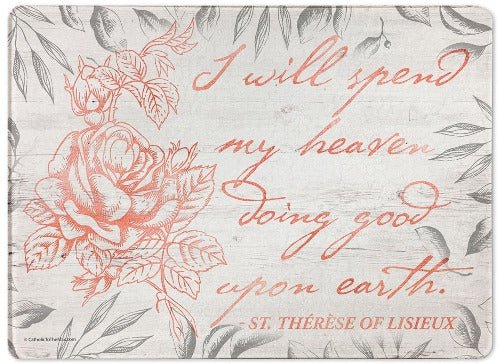 I will spend
my heaven
doing good
upon earth.
- ST. THÉRÈSE OF LISIEUX
© CatholicToTheMax.com